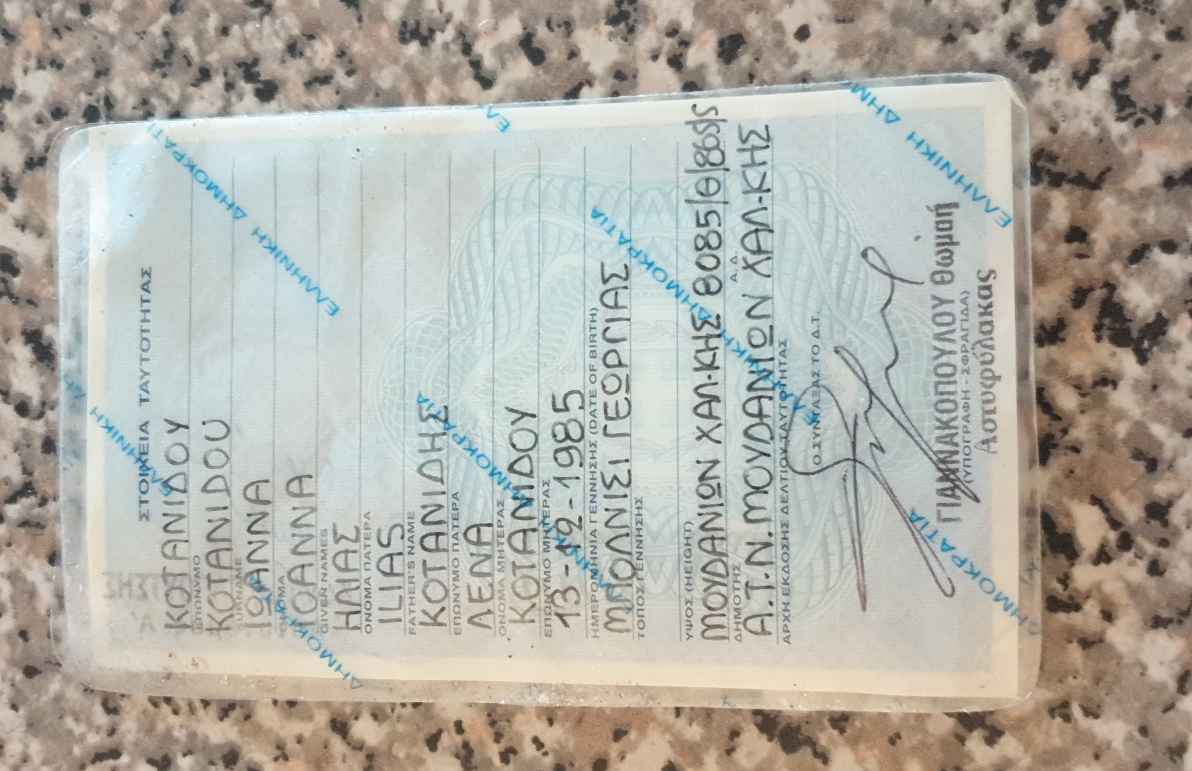 ΣΤΟΙΧΕΙΑ ΤΑΥΤΟΤΗΤΑΣ
ΚΟΤΑΝΙΔΟΥ
ΕΠΩΝΥΜΟ
KOTANIDOU
SURNAME
ΙΩΑΝΝΑ
ΟΝΟΜΑ
IOANNA
GIVEN NAMES
ΗΛΙΑΣ
ΟΝΟΜΑ ΠΑΤΕΡΑ
ILIAS
FATHER'S NAME
ΚΟΤΑΝΙΔΗΣ
ΕΠΩΝΥΜΟ ΠΑΤΕΡΑ
ΛΕΝΑ
ΟΝΟΜΑ ΜΗΤΕΡΑΣ
ΚΟΤΑΝΙΔΟΥ
ΕΠΩΝΥΜΟ ΜΗΤΕΡΑΣ
13-12-1985
ΗΜΕΡΟΜΗΝΙΑ ΓΕΝΝΗΣΗΣ (DATE OF BIRTH)
ΜΠΟΛΝΙΣΙ ΓΕΩΡΓΙΑΣ
ΤΟΠΟΣ ΓΕΝΝΗΣΗΣ
ΥΨΟΣ (HEIGHT)
ΜΟΥΔΑΝΙΩΝ ΧΑΛ-ΚΗΣ
ΔΗΜΟΤΗΣ Α.Δ.
Α.Τ.Ν.ΜΟΥΔΑΝΙΩΝ ΧΑΛ-ΚΗΣ
ΑΡΧΗ ΕΚΔΟΣΗΣ ΔΕΛΤΙΟΥ ΤΑΥΤΟΤΗΤΑΣ
Ο ΣΥΝΤΑΞΑΣ ΤΟ Δ.Τ.
ΓΙΑΝΝΑΚΟΠΟΥΛΟΥ Θωμαή
(ΥΠΟΓΡΑΦΗ - ΣΦΡΑΓΙΔΑ)
Αστυφύλακας
ΕΛΛΗΝΙΚΗ ΔΗΜΟΚΡΑΤΙΑ